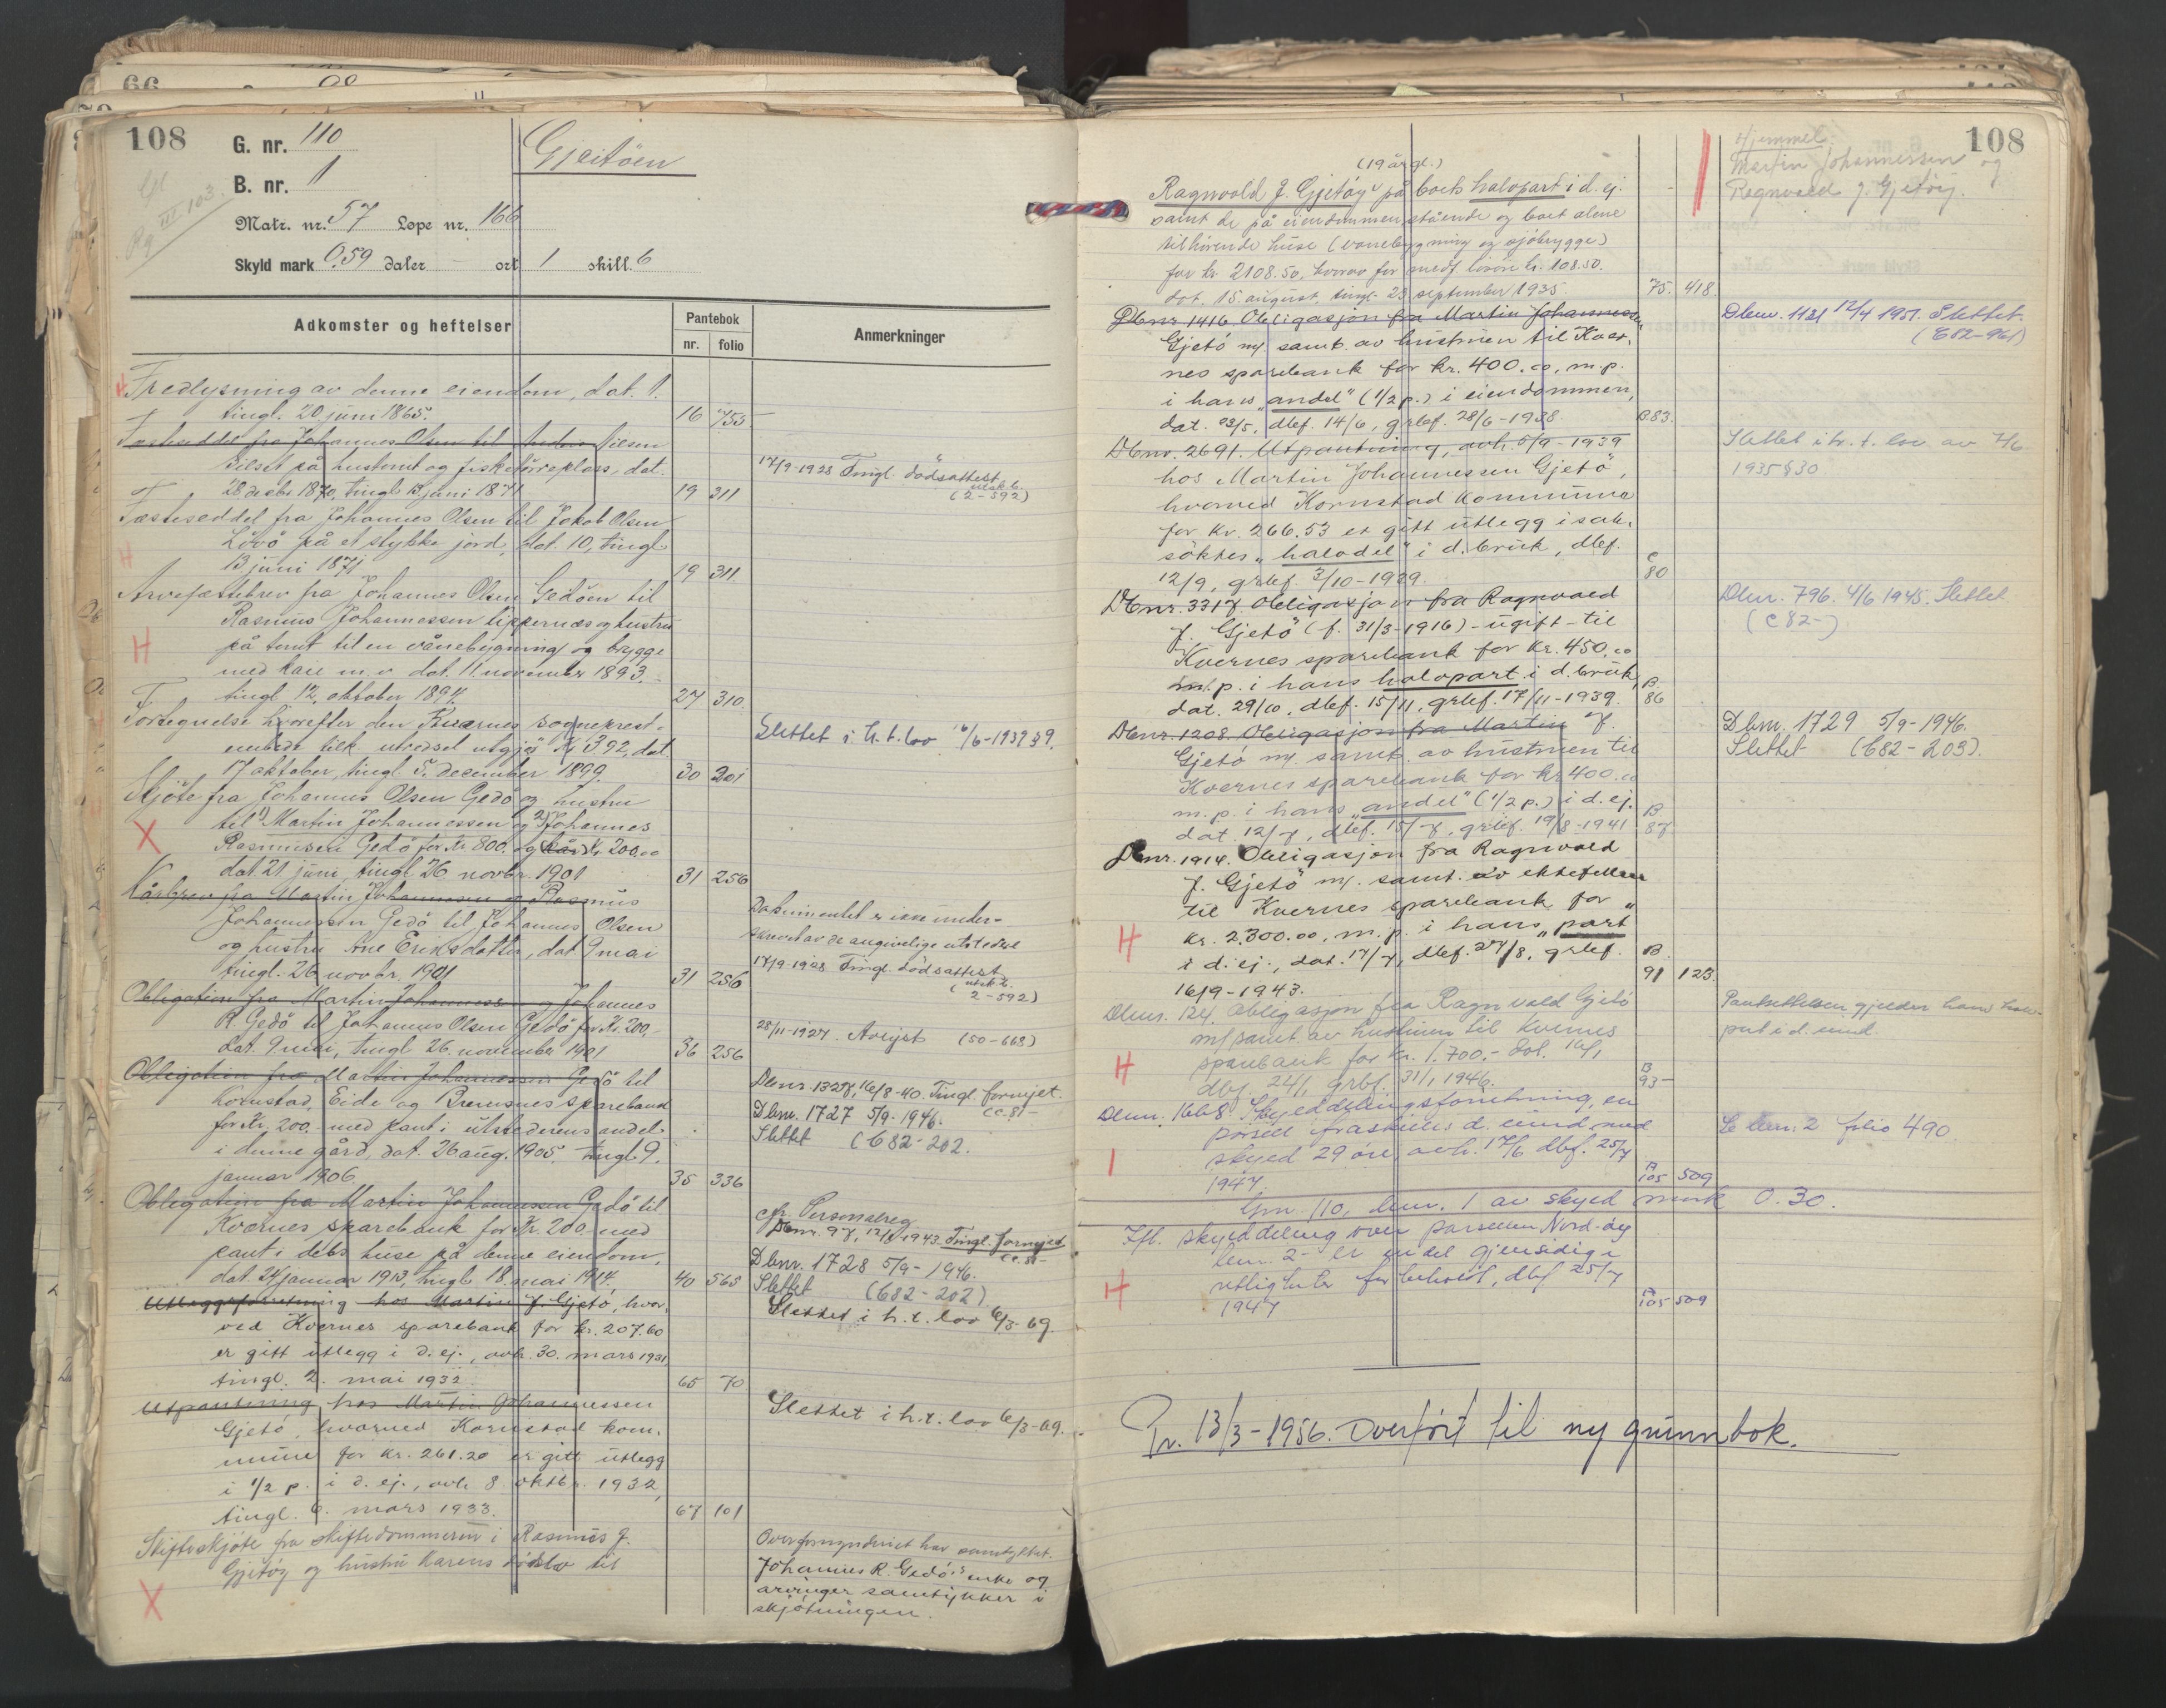 108
G. nr. 110
Gjeitöen
B. nr. 1
Matr. nr. 57 Løpe nr. 166
Skyld mark 0,59 daler - ort 1 skill. 6
Adkomster og heftelser
Pantebok
nr. folio
Anmerkninger
Fredlysning av denne eiendom, dat. 1.
tingl. 20 juni 1865. 16 755
Fæsteseddel fra Johannes Olsen til Anders Nilsen
på hustomt og fisketörreplass, dat.
28 decbr 1870, tingl. 13 juni 1871 19 311
17/9-1928 Tingl. dödsattest
utsk. b.
(2-592)
Fæsteseddel fra Johannes Olsen til Jakob Olsen
Lövö på et stykke jord, dat. 10, tingl.
13 juni 1871 19 311
Arvefæstebrev fra Johannes Olsen Gedöen til
Rasmus Johannessen Lippernæs og hustru
på tomt til en vånebygning og brygge
med kaie m.v. dat. 11 november 1893.
tingl. 12. oktober 1894. 27 310
Fortegnelse hvorefter den Kværnes sogneprest-
embede tilk. utredsel utgjör Kr 3.92, dat.
17 oktober, tingl. 5. december 1899. 30 201
Slettet i h. t. lov 16/6-1939 §9.
Skjöte fra Johannes Olsen Gedö og hustru
til 1) Martin Johannessen og 2) Johannes
Rasmusen Gedö for Kr. 800. og kår Kr. 200,00
dat. 21 juni, tingl. 26 novbr. 1901 31 256
Kårbrev fra Martin Johannessen og Rasmus
Johannessen Gedö til Johannes Olsen
og hustru Ane Eriksdatter, dat. 9 mai
tingl. 26 novbr. 1901 31 256
Dokumentet er ikke under-
skrevet av de angivelige utstedere
17/9-1928 Tingl. dödsattest
(utsk. b.
2-592)
Obligation fra Martin Johannessen og Johannes
R. Gedö til Johannes Olsen Gedö for Kr. 200,-
dat. 9 mai, tingl. 26. november 1901 36 256
28/11-1927. Avlyst (50-668)
Obligation fra Martin Johannessen Gedö til
Kornstad, Eide og Bremsnes sparebank
for Kr. 200.- med pant i utstederens andel
i denne gård, dat. 26 aug. 1905, tingl. 9.
januar 1906. 35 336
Dbnr. 1327, 16/8-40. Tingl. fornyet.
Dbnr. 1727 5/9-1946.
Slettet (C82-202.
Obligation fra Martin Johannessen Gedö til
Kværnes sparebank for Kr. 200 med
pant i debs huse på denne eiendom,
dat. 24 januar 1913, tingl. 18. mai 1914. 40 565
cfr. Personalreg.
Dbnr. 97, 12/1 1943. Tingl. fornyed
Dbnr. 1728 5/9-1946.
Slettet (C82-202)
Utleggsforretning hos Martin J. Gjetö, hvor-
ved Kvernes sparebank for kr. 207.60
er gitt utlegg i d. ej., avh. 30. mars 1931,
tingl. 2. mai 1932. 65 70
Slettet i h. t. lov 6/3-69.
Utpantning hos Martin Johannessen
Gjetö, hvorved Kornstad kom-
mune for kr. 261.20 er gitt utlegg
i 1/2 p. i d. ej., avh. 8. oktbr. 1932,
tingl. 6. mars 1933. 67 101
Slettet i h. t. lov 6/3-69.
Skifteskjöte fra skiftedommeren i Rasmus J.
Gjetöy og hustru Karens dödsbo til
Overformynderiet har samtykket.
Johannes R. Gedö's enke og
arvinger samtykker i
skjötningen.
108
Hjemmel:
Martin Johannessen og
Ragnvald J. Gjetöy.
(19 år gl.)
Ragnvald J. Gjetöy på boets halvpart i d. ej.
samt de på eiendommen stående og boet alene
tilhörende huse (vonebygning og sjöbrygge)
for kr. 2108.50, hvorav for medf. lösöre kr. 108.50.
dat. 15. august, tingl. 23 september 1935 75. 418.
Dbnr. 1416. Obligasjon fra Martin Johannessen
Gjetö m/ samt. av hustruen til Kver-
nes sparebank for kr. 400.00, m.p.
i hans "andel" (1/2 p.) i eiendommen,
dat. 23/5, dbf. 14/6, grbf. 28/6-1938. B83.
Dbnr. 1121 12/4 1951. Slettet.
(C82-961)
Dbnr. 2691. Utpantning, avh. 5/9-1939
hos Martin Johannessen Gjetö,
hvorved Kornstad kommune
for kr. 266.53 er gitt utlegg i sak-
söktes "halvdel" i d. bruk, dbf.
12/9, grbf. 3/10-1939. C 80
Slettet i h. t. lov av 7/6
1935 §30
Dbnr. 3317. Obligasjon fra Ragnvald
J. Gjetö (f. 31/3-1916) - ugift - til
Kvernes sparebank for kr. 450.00
m.p. i hans halvpart i d. bruk,
dat. 29/10, dbf. 15/11, grbf. 17/11-1939. B. 86
Dbnr. 796. 4/6 1945. Slettet
(C82-)
Dbnr. 1208. Obligasjon fra Martin J.
Gjetö m/ samt. av hustruen til
Kvernes sparebank for kr 400.00
m.p. i hans "andel" (1/2 p.) i d. ej.
dat. 12/7, dbf. 15/7, grbf. 19/8-1941 B 87
Dbnr. 1729 5/9-1946.
Slettet (C82-203).
Dbnr. 1914. Obligasjon fra Ragnvald
J. Gjetö m/ samt. av ektefellen
til Kvernes sparebank for
kr. 2.300.00, m.p. i hans "part"
i d. ej., dat. 17/7, dbf. 27/8, grbf.
16/9-1943. B. 91 123
Dbnr. 124. Obligasjon fra Ragnvald Gjetö
m/ samt. av hustruen til Kvernes
sparebank for kr. 1.700,- dat. 16/1
dbf. 24/1, grbf. 31/1 1946. B 93-
Pantsettelsen gjelder hans halv-
part i d. eiend.
Dbnr. 1668 Skylddelingsforretning, en
parsell fraskilles d. eiend. med
skyld 29 öre, avh. 17/6 dbf. 25/7
1947. A 105 509
Se bnr. 2 folio 490
Gnr. 110, bnr. 1 av skyld mark 0.30.
Ifl. skylddeling over parsellen Nord-öy
bnr. 2 er endel gjensidige
rettigheter forbeholdt, dbf 25/7
1947 A 105 509
Pr. 13/3-1956. Overført til ny grunnbok.